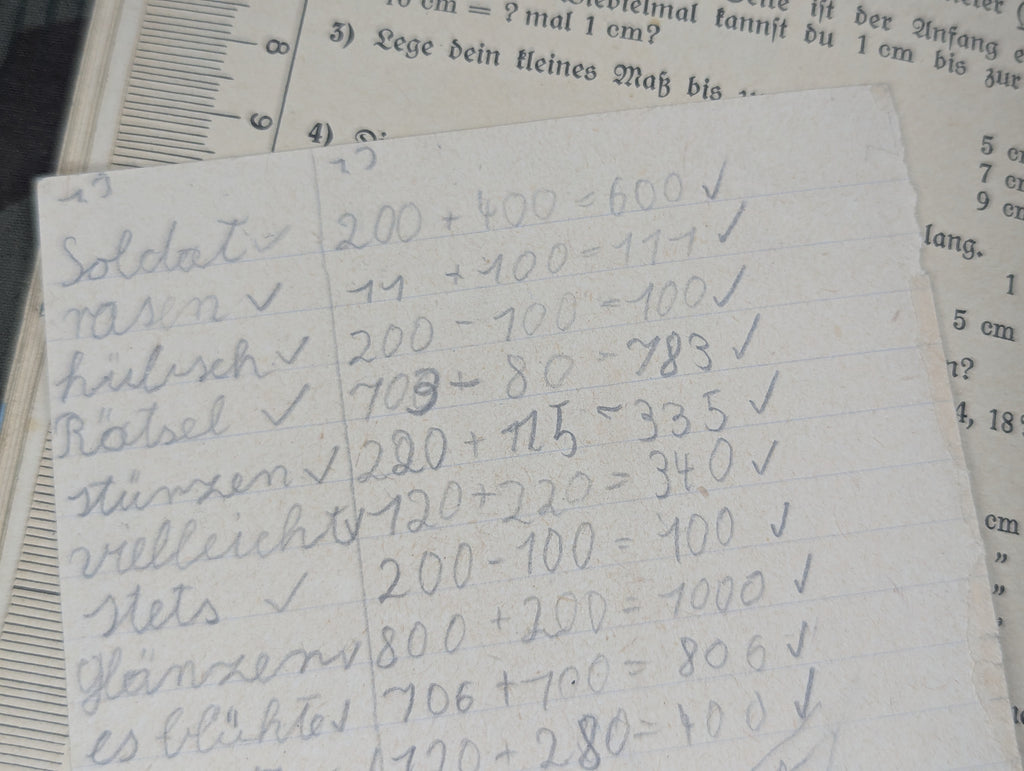 ist der Anfang
cm = ? mal 1 cm?
kannst du 1 cm bis zur
3) Lege dein kleines Maß bis
8
9
4)
5
7
9
lang.
1
5 cm
4, 18
cm
"
"
13 13
Soldat ✓ 200 + 400 = 600 ✓
rasen ✓ 11 + 100 = 111 ✓
hübsch ✓ 200 - 100 = 100 ✓
Rätsel ✓ 703 + 80 = 783 ✓
stürzen ✓ 220 + 115 = 335 ✓
vielleicht ✓ 120 + 220 = 340 ✓
stets ✓ 200 - 100 = 100 ✓
glänzen ✓ 800 + 200 = 1000 ✓
es blühte ✓ 706 + 100 = 806 ✓
120 + 280 = 400 ✓